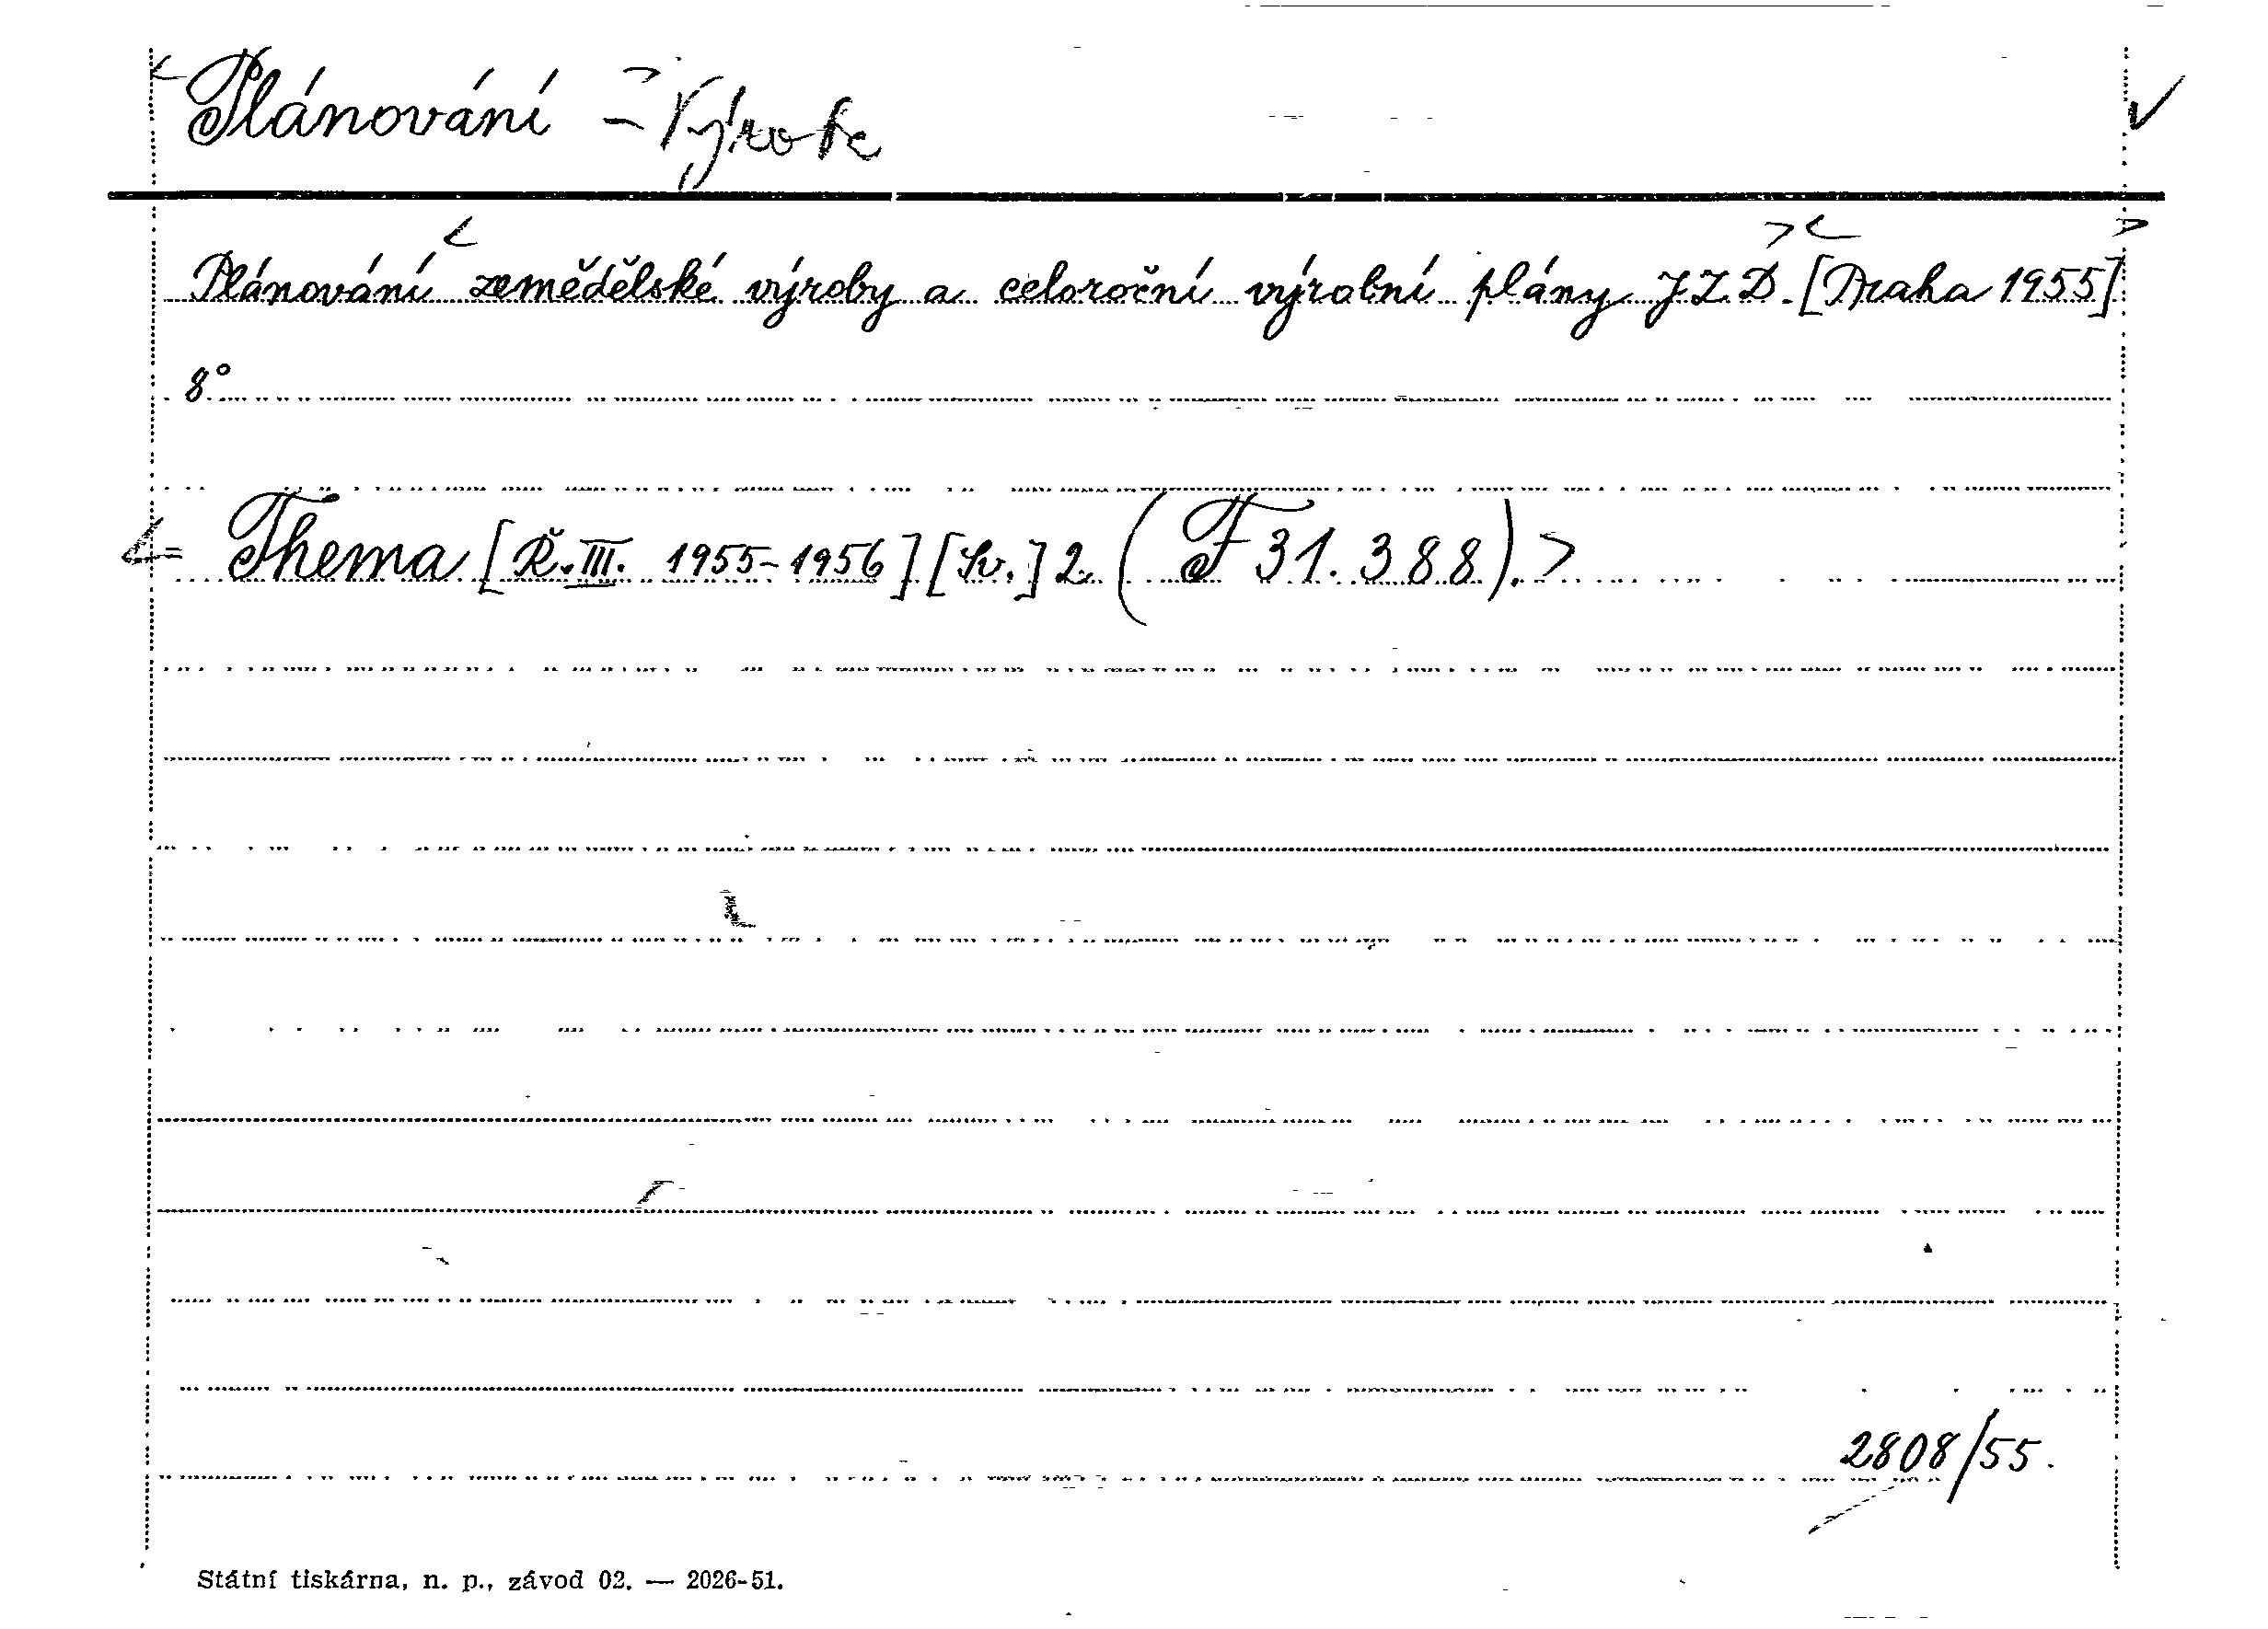 Plánování – Výroba
Plánování zemědělské výroby a celoroční výrobní plány J.Z.D. [Praha 1955]
8°
= Thema [Ř. III. 1955-1956] [Sv.] 2 (F 31.388).
2808/55.
Státní tiskárna, n. p., závod 02. — 2026-51.